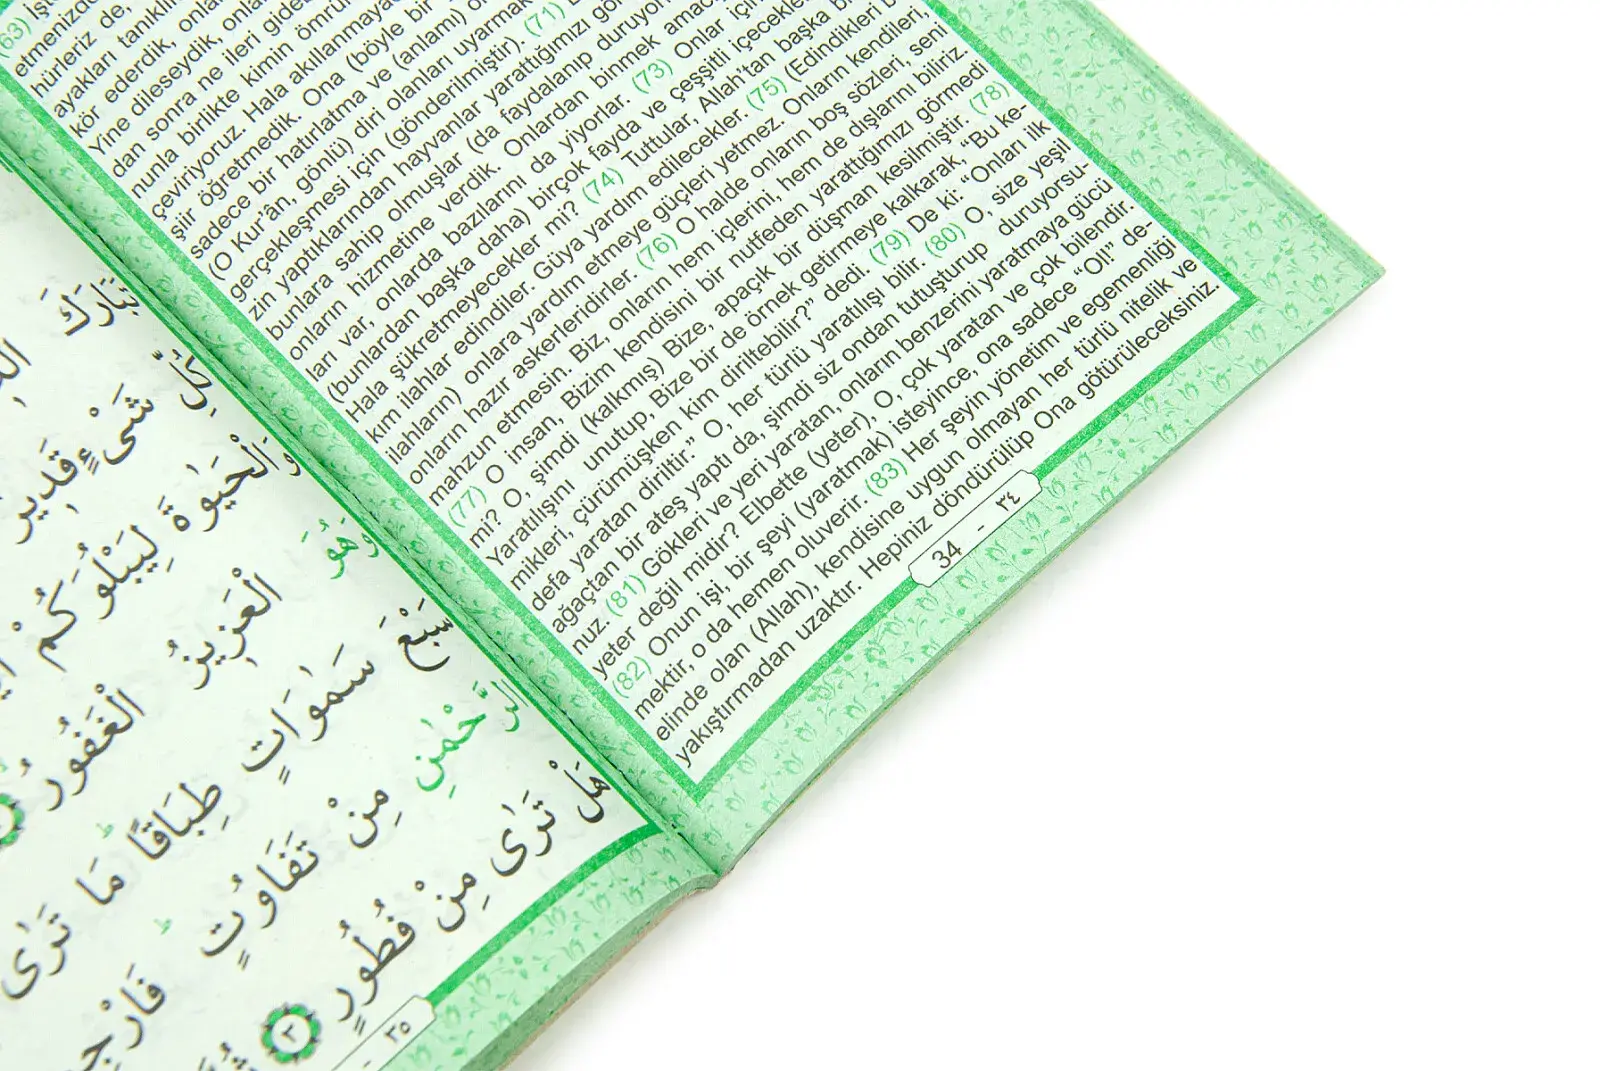 (63) İşt
etmenizde
hürleriz de,
ayakları tanıklık
kör ederdik, onla
Yine dileseydik, onla
dan sonra ne ileri gide
nunla birlikte kimin ömrün
çeviriyoruz. Hala akıllanmaya
şiir öğretmedik. Ona (böyle bir
sadece bir hatırlatma ve (anlamı)
(O Kur'ân, gönlü) diri olanları uyarmak
gerçekleşmesi için (gönderilmiştir). (71)
zin yaptıklarından hayvanlar yarattığımızı gö
bunlara sahip olmuşlar (da faydalanıp duruyor
onların hizmetine verdik. Onlardan binmek amac
ları var, onlarda bazılarını da yiyorlar. (73) Onlar için
(bunlardan başka daha) birçok fayda ve çeşşitli içecekle
Hala şükretmeyecekler mi? (74) Tuttular, Allah'tan başka b
kım ilahlar edindiler. Güya yardım edilecekler. (75) (Edindikleri
ilahların) onlara yardım etmeye güçleri yetmez. Onların kendileri,
onların hazır askerleridirler. (76) O halde onların boş sözleri, seni
mahzun etmesin. Biz, onların hem içlerini, hem de dışlarını biliriz.
(77) O insan, Bizim kendisini bir nutfeden yarattığımızı görmedi
mi? O, şimdi (kalkmış) Bize, apaçık bir düşman kesilmiştir. (78)
Yaratılışını unutup, Bize bir de örnek getirmeye kalkarak, "Bu ke-
mikleri, çürümüşken kim diriltebilir?" dedi. (79) De ki: "Onları ilk
defa yaratan diriltir." O, her türlü yaratılışı bilir. (80) O, size yeşil
ağaçtan bir ateş yaptı da, şimdi siz ondan tutuşturup duruyorsu-
nuz. (81) Gökleri ve yeri yaratan, onların benzerini yaratmaya gücü
yeter değil midir? Elbette (yeter), O, çok yaratan ve çok bilendir.
(82) Onun işi, bir şeyi (yaratmak) isteyince, ona sadece "Ol!" de-
mektir, o da hemen oluverir. (83) Her şeyin yönetim ve egemenliği
elinde olan (Allah), kendisine uygun olmayan her türlü nitelik ve
yakıştırmadan uzaktır. Hepiniz döndürülüp Ona götürüleceksiniz.
34 - ٣٤
تَبَارَكَ
كُلِّ شَىْءٍ قَدِيرٌ
وَالْحَيٰوةَ لِيَبْلُوَكُمْ
وَهُوَ الْعَزِيزُ الْغَفُورُ
سَبْعَ سَمٰوَاتٍ طِبَاقًا مَا تَرٰى
الرَّحْمٰنِ مِنْ تَفَاوُتٍ فَارْجِ
هَلْ تَرٰى مِنْ فُطُورٍ ٣
- ٣٥